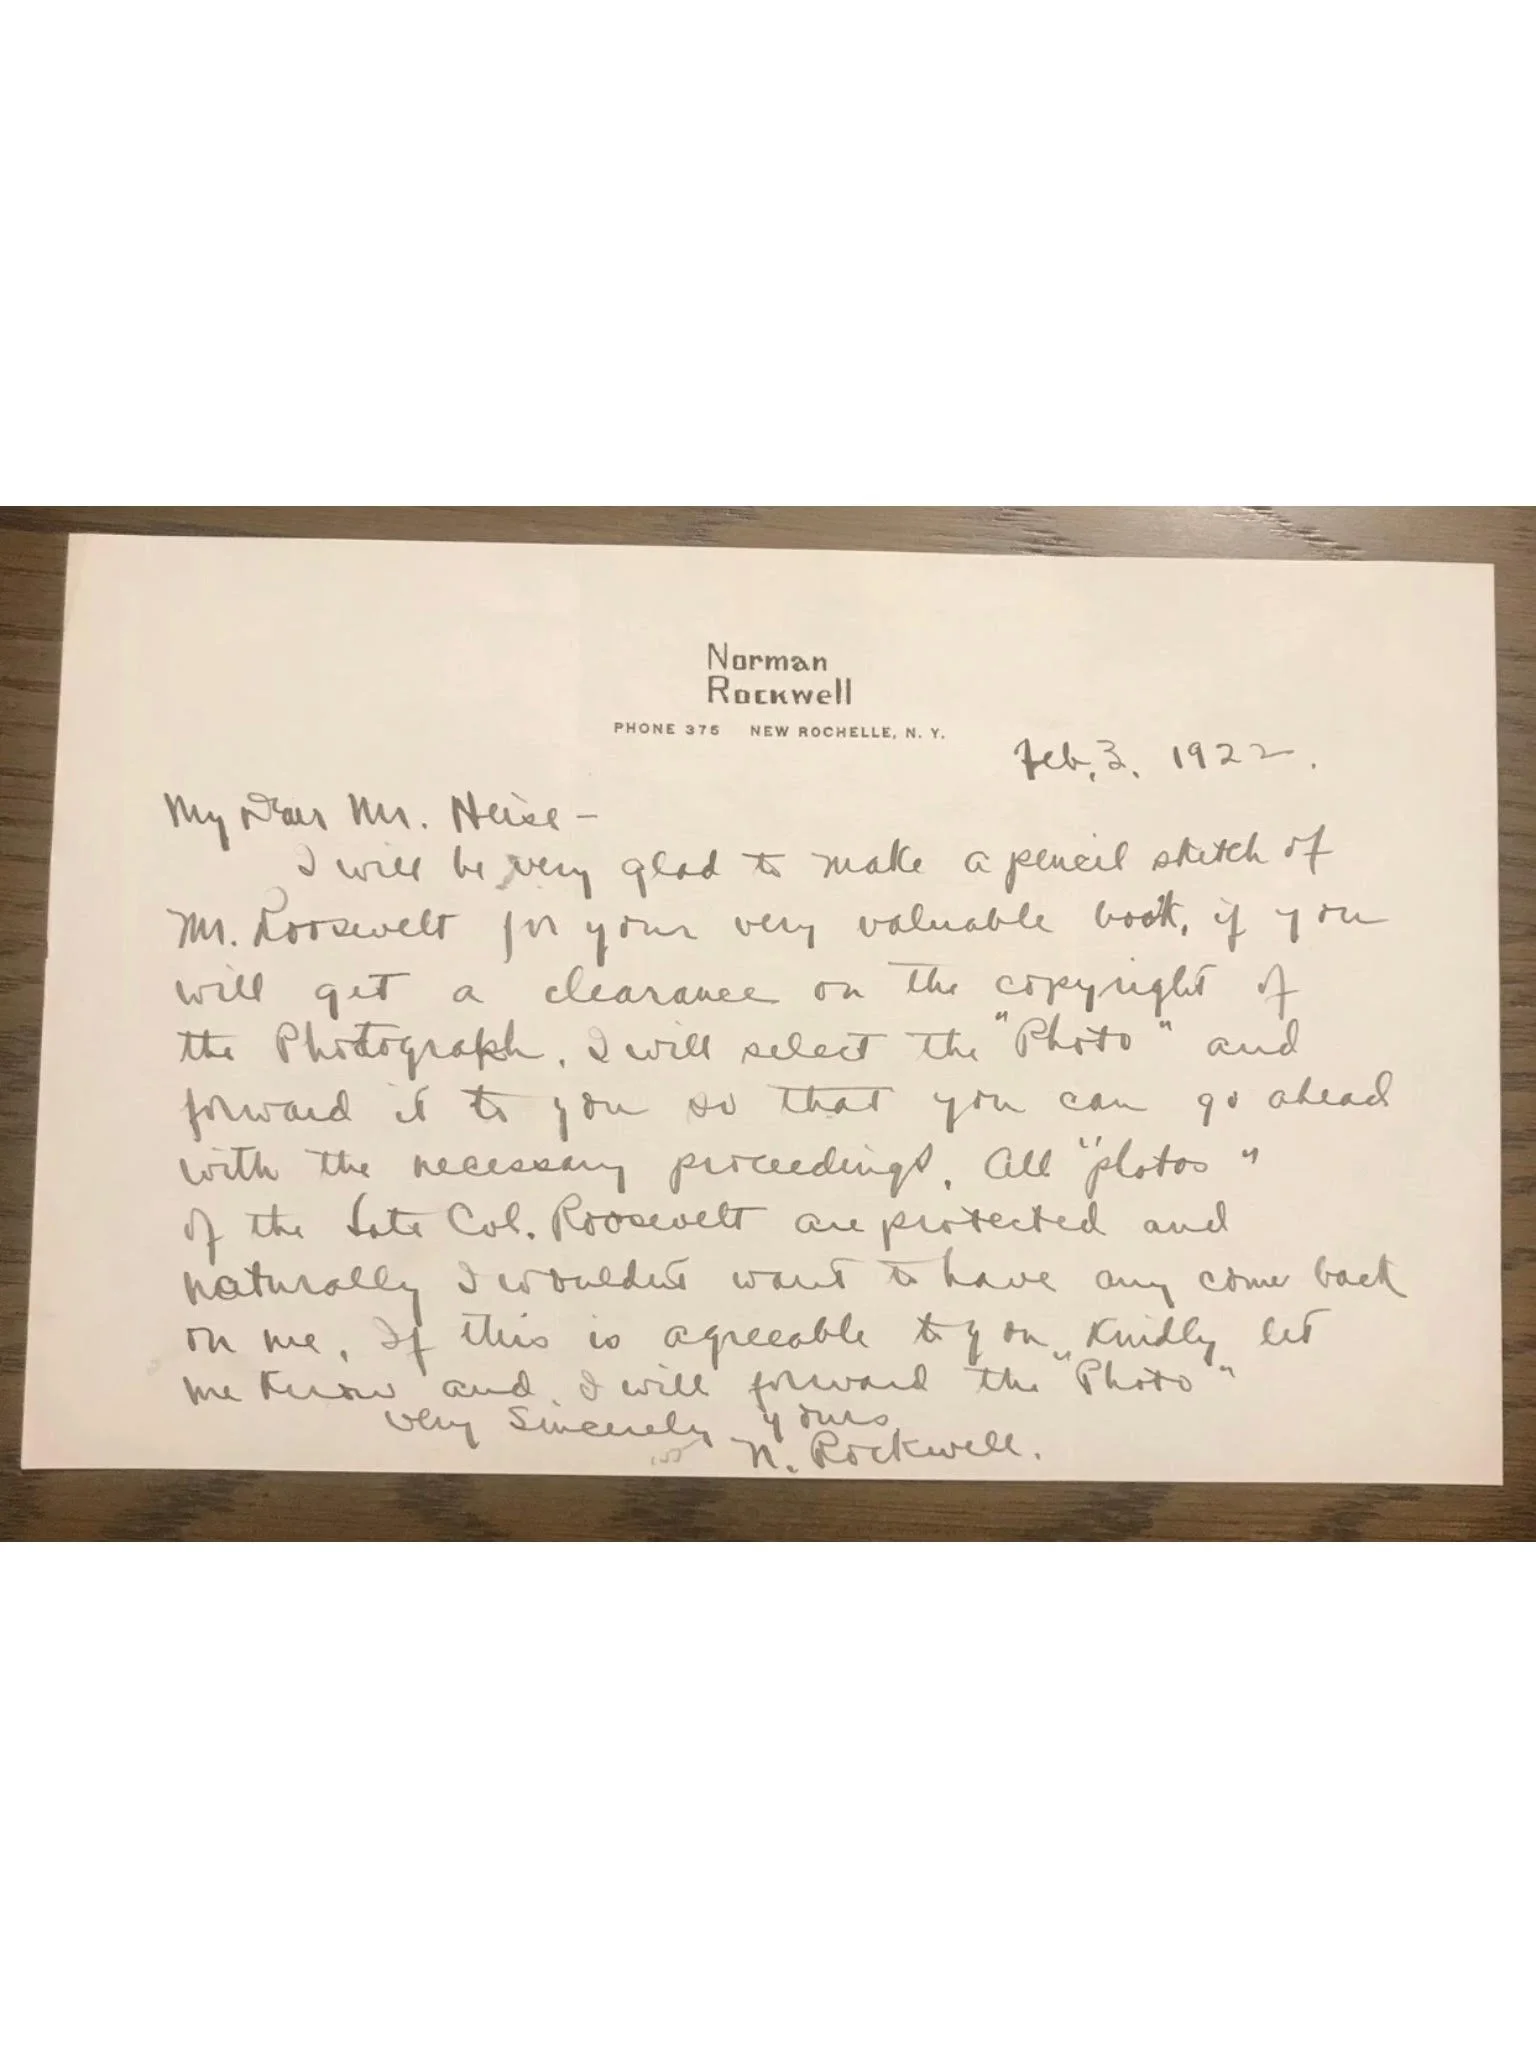 Norman
Rockwell
PHONE 375 NEW ROCHELLE, N. Y.
Feb, 3, 1922.
My Dear Mr. Heise –
I will be very glad to make a pencil sketch of
Mr. Roosevelt for your very valuable book, if you
will get a clearance on the copyright of
the Photograph. I will select the "Photo" and
forward it to you so that you can go ahead
with the necessary proceedings. All "photos"
of the Late Col. Roosevelt are protected and
naturally I wouldn't want to have any come back
on me. If this is agreeable to you kindly let
me know and I will forward the "Photo"
very Sincerely yours
N. Rockwell.